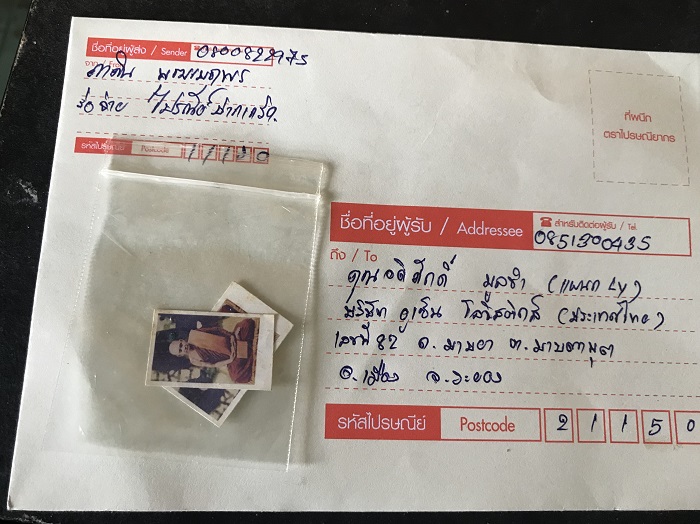 ชื่อที่อยู่ผู้ส่ง / Sender 0800822775
จาก / From
สั่งจ่าย ไปรษณีย์ปากเกร็ด
รหัสไปรษณีย์ Postcode 11120
ที่ผนึก
ตราไปรษณียากร
ชื่อที่อยู่ผู้รับ / Addressee
สำหรับติดต่อผู้รับ / Tel.
0851300435
ถึง / To
คุณอดิศักดิ์ มูลขำ (แผนก Ly)
บริษัท ยูเซ็น โลจิสติกส์ (ประเทศไทย)
เลขที่ 82 ถ. มาบยา ต. มาบตาพุด
อ. เมือง จ. ระยอง
รหัสไปรษณีย์ Postcode 21150